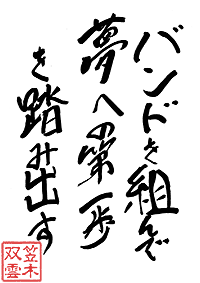 バンドを組んで
夢への第一歩
を踏み出す
笠木
双雲